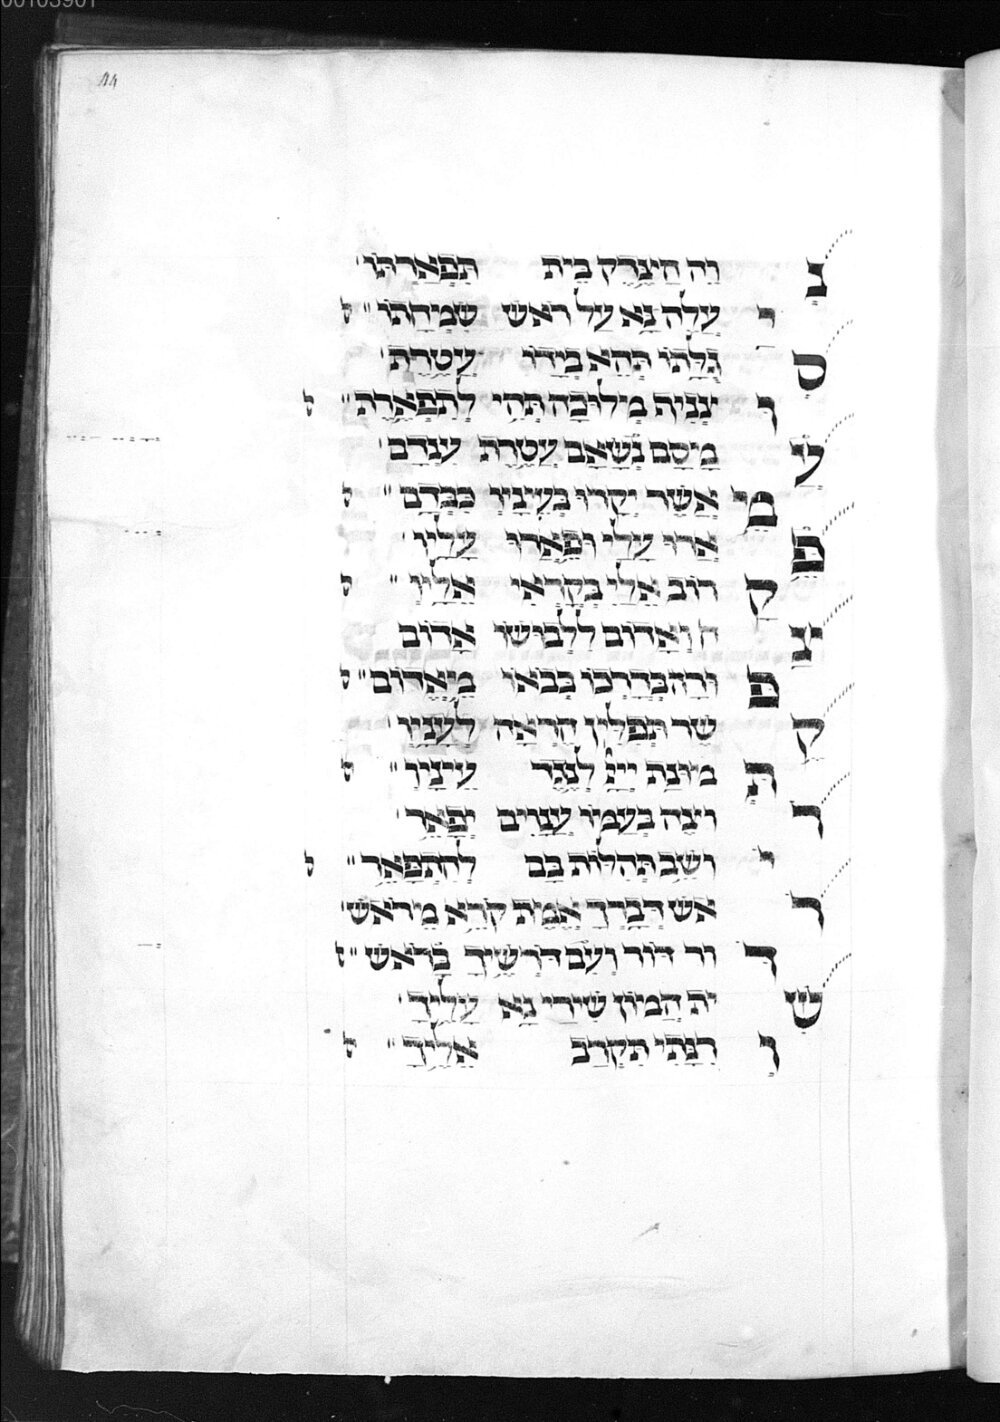 00103901
44
נָ וֵה הִיצְּרֵק בַּיִת תִּפְאַרְתּוֹ
יַ עֲלֶה נָא עַל רֹאשׁ שִׂמְחָתוֹ " ל
סְ גֻלָּתוֹ תְּהֵא בְיָדוֹ עֲטֶרֶת
וּ צְנִיף מְלוּכָה תְּהִי לְתִפְאֶרֶת " ל
עַ מּוּסִם נְשָׂאָם עֲטֶרֶת עִנְּדָם
מֵ אֲשֶׁר יָקְרוּ בְעֵינָיו כִּבְּדָם " ל
פְּ אֵרוֹ עָלַי וּפְאֵרִי עָלָיו
וְ קָרוֹב אֵלַי בְּקָרְאִי אֵלָיו " ל
צַ ח וְאָדוֹם לִלְבוּשׁוֹ אָדוֹם
פּ וּרָה בְּדָרְכוֹ בְּבֹאוֹ מֵאֱדוֹם " ל
קֶ שֶׁר תְּפִלִּין הֶרְאָה לֶעָנָיו
תְּ מוּנַת יְיָ לְנֶגֶד עֵינָיו " ל
ר וֹצֶה בְעַמּוֹ עֲנָוִים יְפָאֵר
י וֹשֵׁב תְּהִלּוֹת בָּם לְהִתְפָּאֵר " ל
ר ֹאשׁ דְּבָרְךָ אֱמֶת קוֹרֵא מֵרֹאשׁ
דּ וֹר דּוֹר וְעַם דּוֹרְשֶׁיךָ דְּרֹאשׁ " ל
שִׁ ית הֲמוֹן שִׁירַי נָא עָלֶיךָ
וְ רִנָּתִי תִּקְרַב אֵלֶיךָ " ל